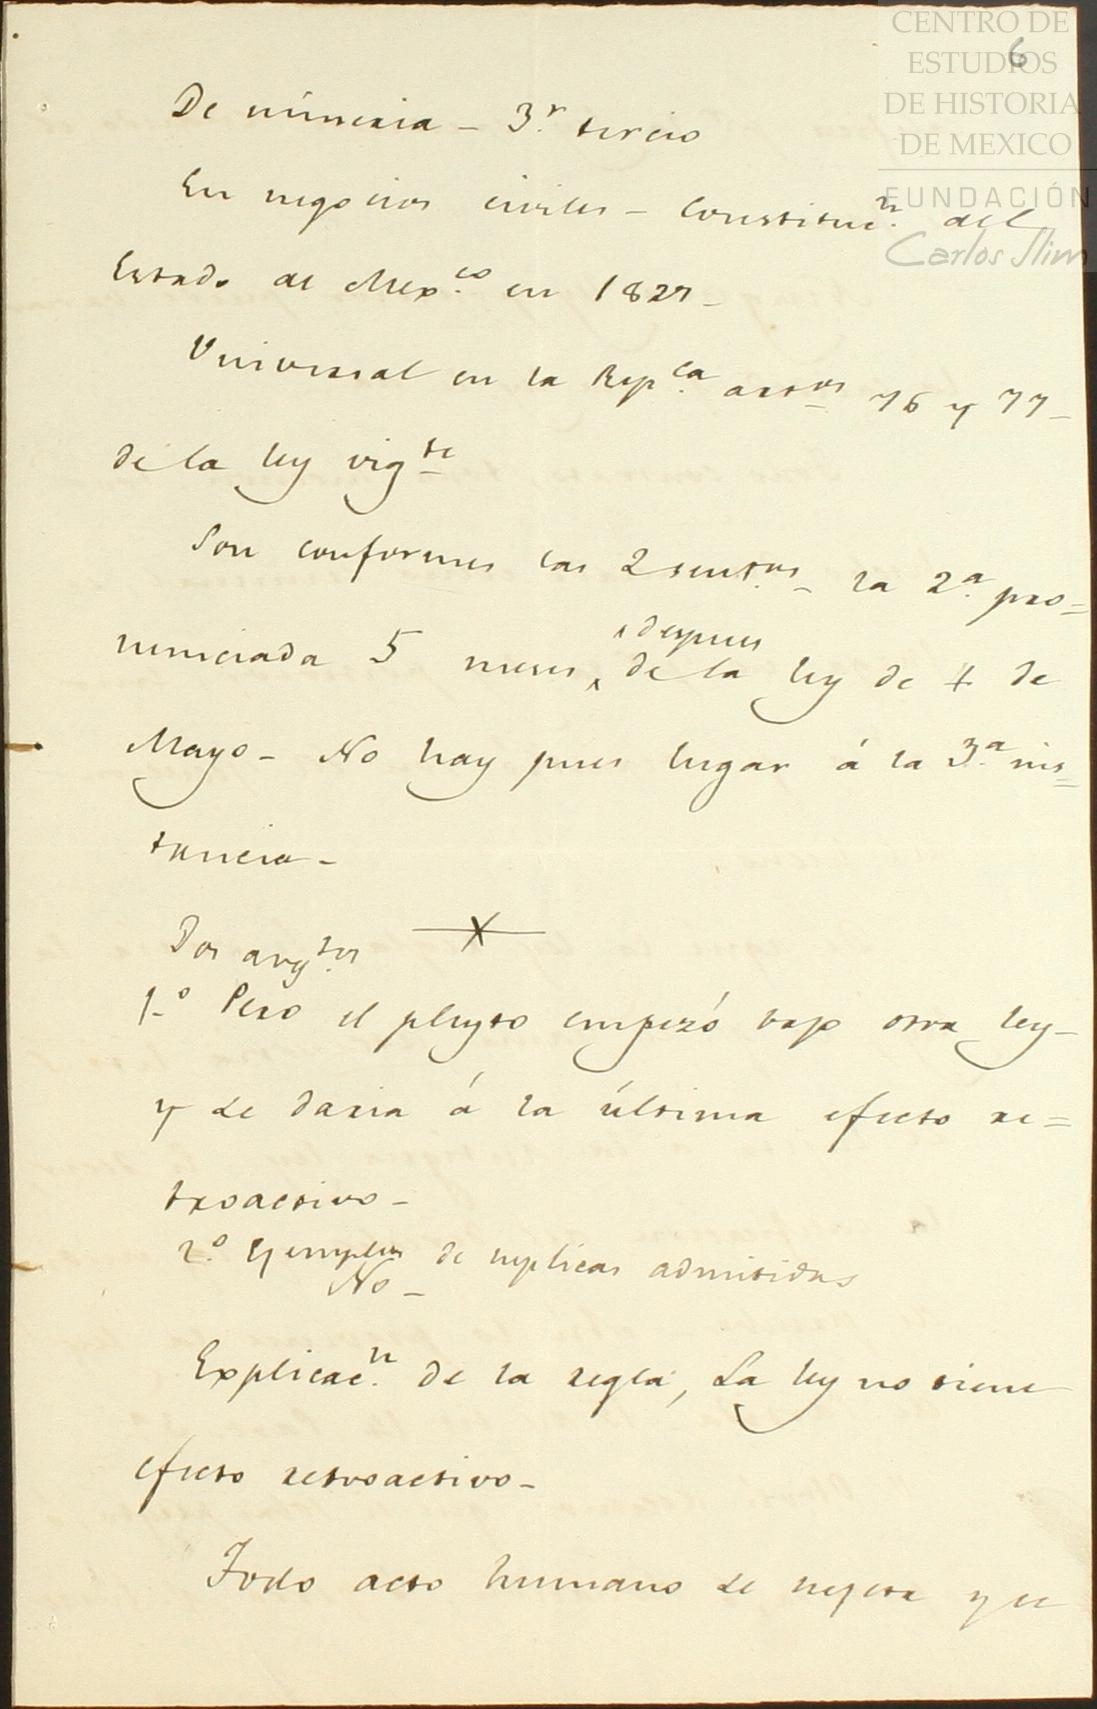 CENTRO DE
ESTUDIOS
DE HISTORIA
DE MEXICO
FUNDACIÓN
Carlos Slim
6
De minería - 3.r tercio
En negocios civiles - Constituc.n del
Estado de Mex.co en 1827 -
Universal en la Rep.ca arts.os 76 y 77 -
de la ley vig.te
Son conformes las 2 sent.as - la 2.a pro=
nunciada 5 meses despues de la ley de 4 de
Mayo - No hay pues lugar á la 3.a ins=
tancia -
Dos arg.tos
1.o Pero el pleyto empezó bajo otra ley -
y se daria á la última efecto re=
troactivo -
2.o Ejemplos de suplicas admitidas
No -
Explicac.n de la regla, La ley no tiene
efecto retroactivo -
Todo acto humano se sujeta y se